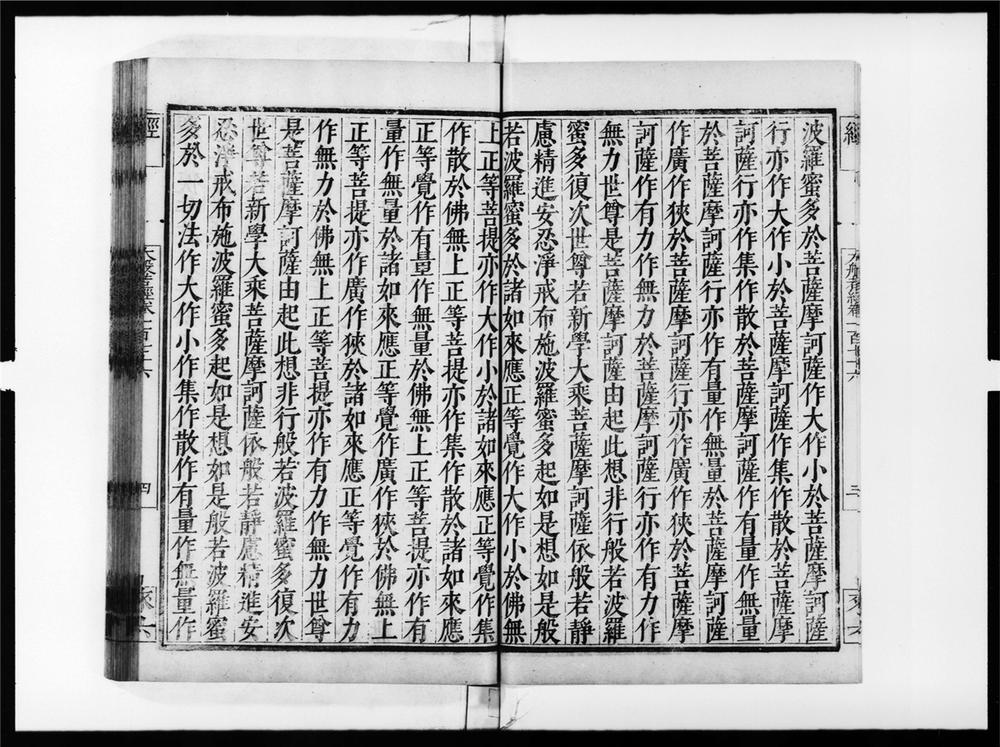 波羅蜜多於菩薩摩訶薩作大作小於菩薩摩訶薩
行亦作大作小於菩薩摩訶薩作集作散於菩薩摩
訶薩行亦作集作散於菩薩摩訶薩作有量作無量
於菩薩摩訶薩行亦作有量作無量於菩薩摩訶薩
作廣作狹於菩薩摩訶薩行亦作廣作狹於菩薩摩
訶薩作有力作無力於菩薩摩訶薩行亦作有力作
無力世尊是菩薩摩訶薩由起此想非行般若波羅
蜜多復次世尊若新學大乘菩薩摩訶薩依般若靜
慮精進安忍淨戒布施波羅蜜多起如是想如是般
若波羅蜜多於諸如來應正等覺作大作小於佛無
上正等菩提亦作大作小於諸如來應正等覺作集
作散於佛無上正等菩提亦作集作散於諸如來應
正等覺作有量作無量於佛無上正等菩提亦作有
量作無量於諸如來應正等覺作廣作狹於佛無上
正等菩提亦作廣作狹於諸如來應正等覺作有力
作無力於佛無上正等菩提亦作有力作無力世尊
是菩薩摩訶薩由起此想非行般若波羅蜜多復次
世尊若新學大乘菩薩摩訶薩依般若靜慮精進安
忍淨戒布施波羅蜜多起如是想如是般若波羅蜜
多於一切法作大作小作集作散作有量作無量作
經
大般若經卷一百七十六
四
來六